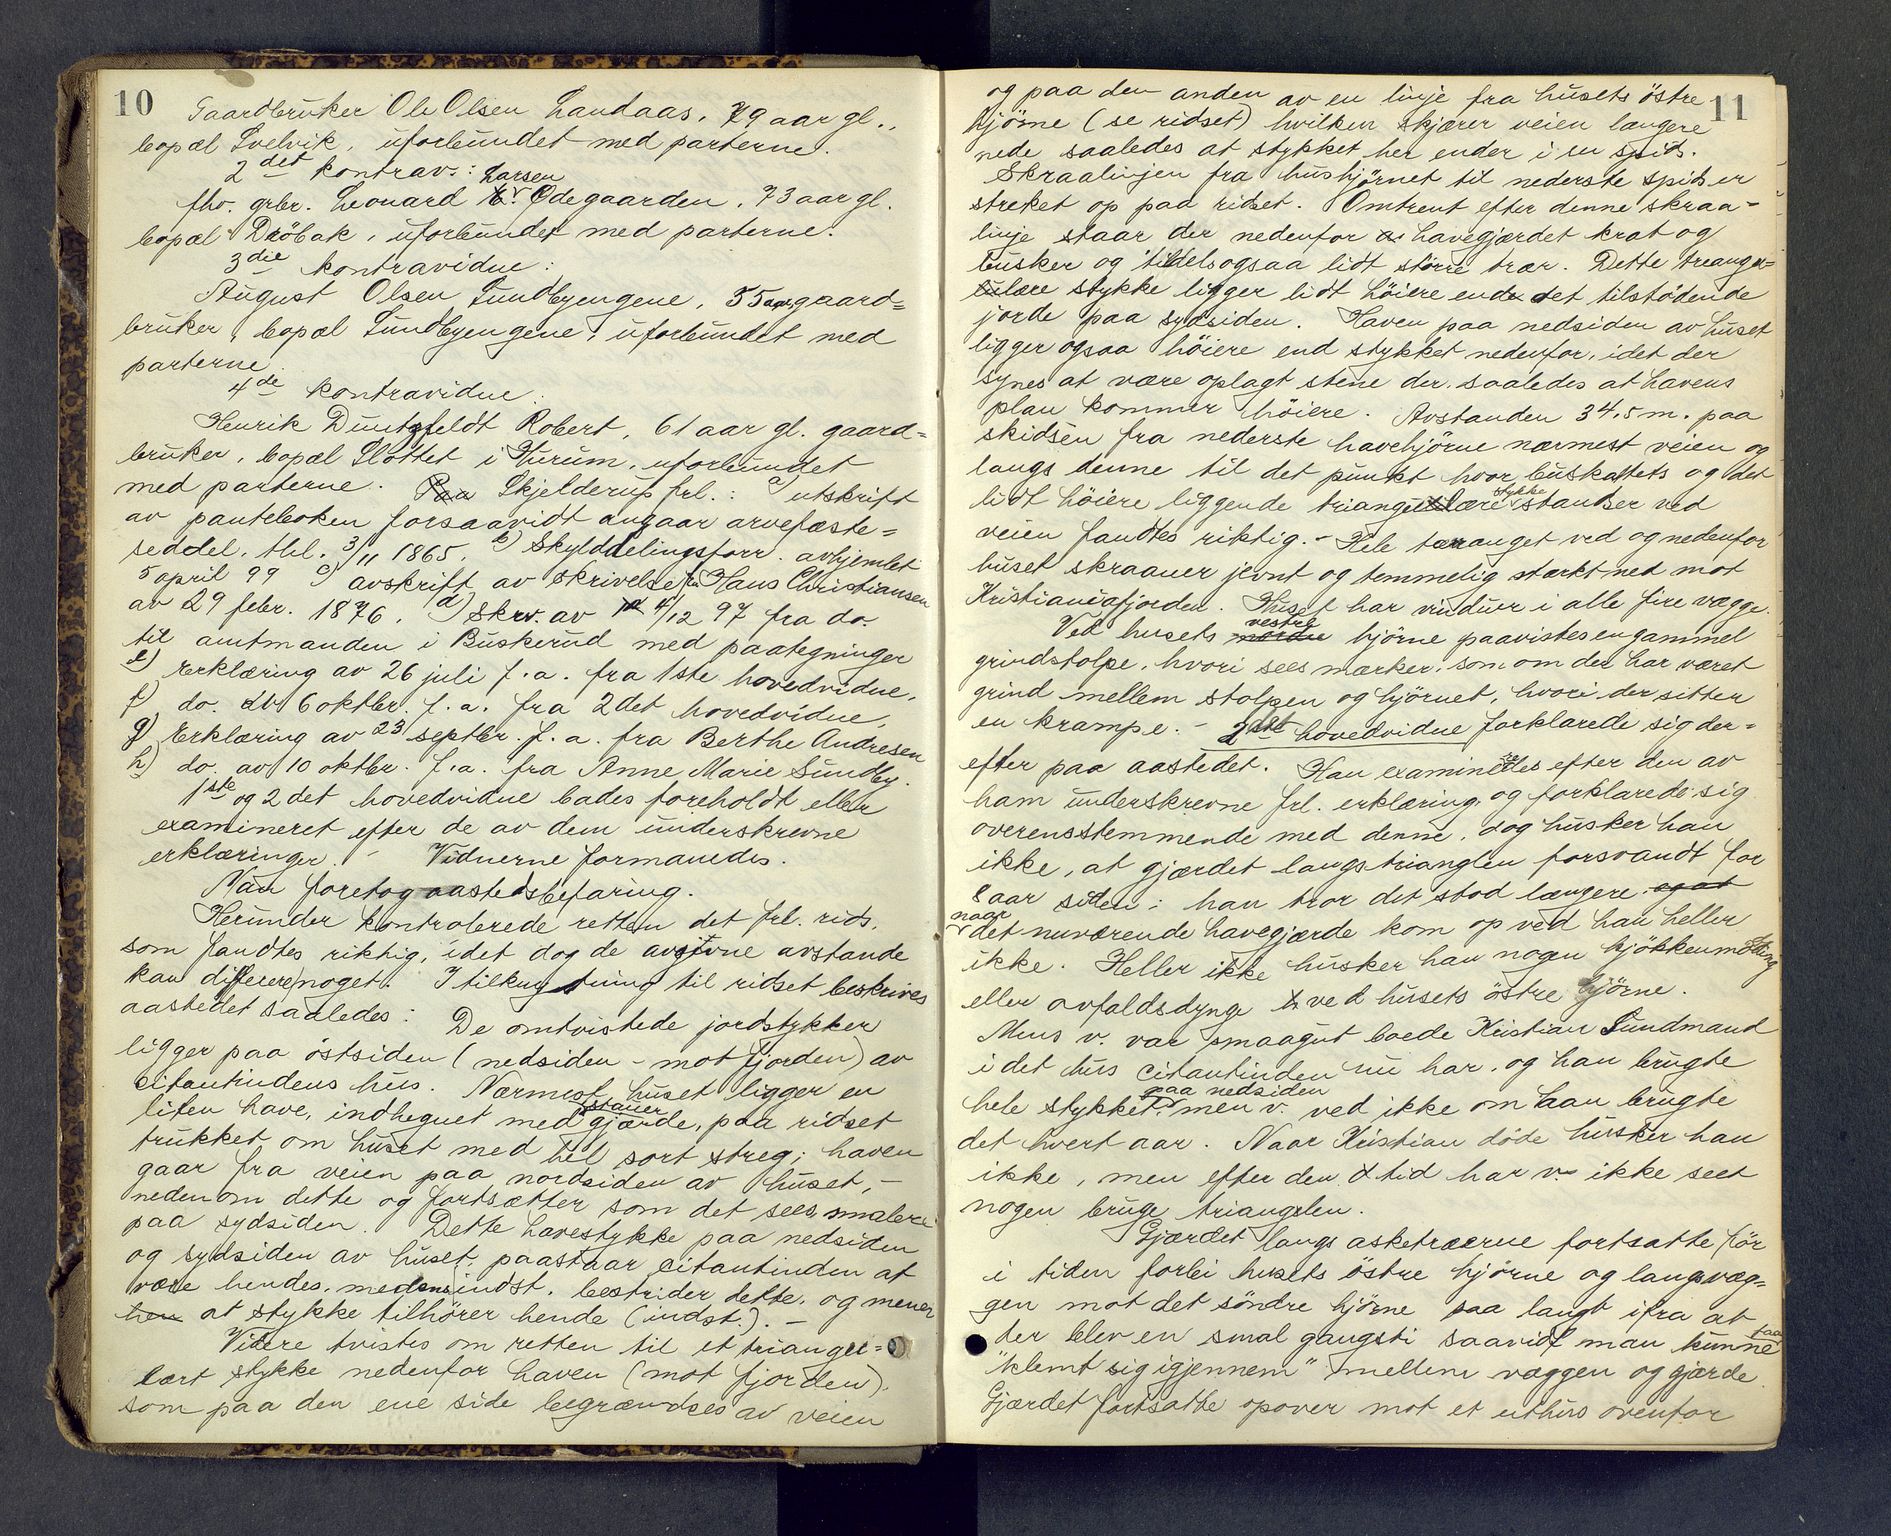 10
Gaardbruker Ole Olsen Landaas, 79 aar gl.,
bopæl Svelvik, uforbundet med parterne.
2det kontrav.: Larsen
fhv. grbr. Leonard Ødegaarden, 73 aar gl.
bopæl Dröbak, uforbundet med parterne.
3die kontravidne:
August Olsen Sundbyengene, 55 aar, gaard=
bruker, bopæl Sundbyengene, uforbundet med
parterne.
4de kontravidne:
Henrik Duntzfeldt Robert, 61 aar gl. gaard=
bruker, bopæl Slottet i Hurum, uforbundet
med parterne. Paa Skjelderup frl.: a) utskrift
av panteboken forsaavidt angaar arvefæste=
seddel, thl. 3/11 1865. b) Skylddelingsforr. avhjemlet
5 april 99 c) avskrift av skrivelse fra Hans Christiansen
av 29 febr. 1876. d) Skrv. av 4/12 97 fra do.
til amtmanden i Buskerud med paategninger
e) Erklæring av 26 juli f.a. fra 1ste hovedvidne,
f) do. av 6 oktbr. f.a. fra 2det hovedvidne,
g) Erklæring av 23 septbr. f.a. fra Berthe Andresen
h) do. av 10 oktbr. f.a. fra Anne Marie Sundby.
1ste og 2det hovedvidne bades foreholdt eller
examineret efter de av dem underskrevne
erklæringer. - Vidnerne formanedes.
Man foretog aastedsbefaring.
Herunder kontrolerede retten det frl. rids,
som fandtes riktig, idet dog de avgivne avstande
kan differere noget. I tilknytning til ridset beskrives
aastedet saaledes: De omtvistede jordstykker
ligger paa östsiden (nedsiden - mot fjorden) av
citantindens hus. Nærmest huset ligger en
liten have, indhegnet med stauer gjærde, paa ridset
trukket om huset med hel sort streg; haven
gaar fra veien paa nordsiden av huset, -
nedenom dette og fortsætter som det sees smalere
paa sydsiden. Dette havestykke paa nedsiden
og sydsiden av huset, paastaar citantinden at
være hendes, medens indst. bestrider dette, og mener
at stykke tilhörer hende (indst.). -
Videre tvistes om retten til et triangu=
lært stykke nedenfor haven (mot fjorden),
som paa den ene side begrændses av veien
11
og paa den anden av en linje fra husets östre
hjörne (se ridset) hvilken skjærer veien længere
nede saaledes at stykket her ender i en spids.
Skraalinjen fra hushjörnet til nederste spids er
streket op paa ridset. Omtrent efter denne skraa=
linje staar der nedenfor havegjærdet krat og
busker og tildels ogsaa lidt större trær. Dette triangu=
lære stykke ligger lidt höiere end det tilstödende
jorde paa sydsiden. Haven paa nedsiden av huset
ligger ogsaa höiere end stykket nedenfor, idet der
synes at være oplagt stene der, saaledes at havens
plan kommer höiere. Avstanden 34,5 m. paa
skidsen fra nederste havehjörne nærmest veien og
langs denne til det punkt hvor buskattets og det
lidt höiere liggende triangulære stykke standser ved
veien fandtes riktig. - Hele terrænget ved og nedenfor
huset skraaner jevnt og temmelig stærkt ned mot
Kristianiafjorden. Huset har vinduer i alle fire vægge.
Ved husets nordre vestre hjörne paavistes en gammel
grindstolpe, hvori sees marker, som om der har været
grind mellem stolpen og hjörnet, hvori der sitter
en krampe. - 2det hovedvidne forklarede sig der=
efter paa aastedet. Han examineredes efter den av
ham underskrevne frl. erklæring, og forklarede sig
overensstemmende med denne, dog husker han
ikke, at gjærdet langs trianglen forsvandt for
8 aar siden; han tror det stod længere, og at
naar det nuværende havegjærde kom op ved han heller
ikke. Heller ikke husker han nogen kjökkenmödding
eller avfaldsdynge ved husets östre hjörne.
Mens v. var smaagut boede Kristian Sundmand
i det hus citantinden nu har, og han brugte
hele stykket paa nedsiden men v. ved ikke om han brugte
det hvert aar. Naar Kristian döde husker han
ikke, men efter den tid har v. ikke seet
nogen bruge trianglen.
Gjærdet langs asketræerne fortsatte för
i tiden forbi husets östre hjörne og langs væg=
gen mot det söndre hjörne saa langt ifra at
der blev en smal gangsti saavidt man kunne faa
"klemt sig igjennem" mellem væggen og gjærde.
Gjærdet fortsatte opover mot et uthus ovenfor